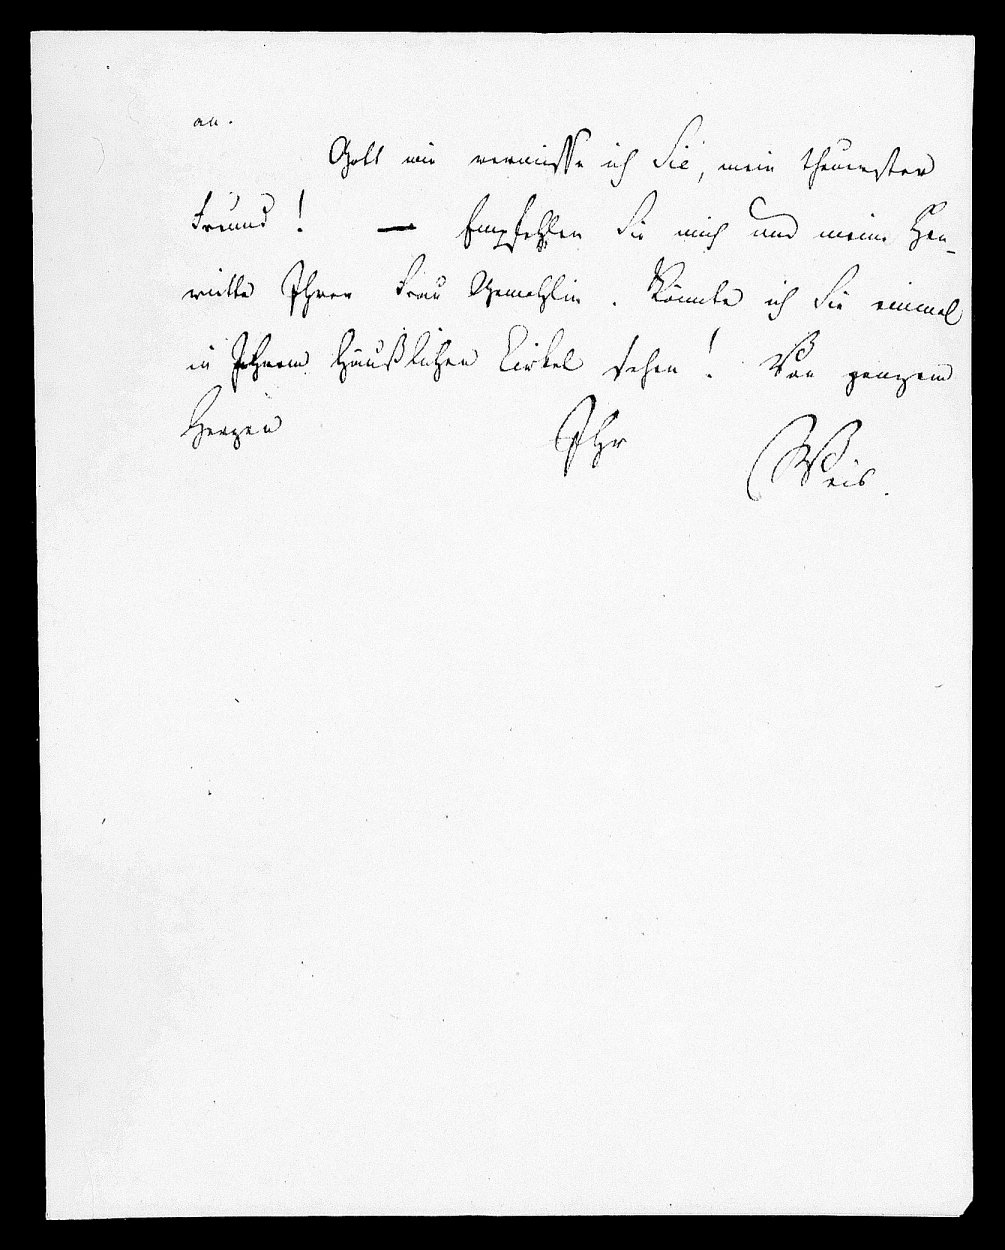 an.
Gott wie vermisse ich Sie, mein theuerster
Freund! — Empfehlen Sie mich und meine Hen-
riette Ihrer Frau Gemahlin. Könnte ich Sie einmal
in Ihrem häußlichen Cirkel sehen! Von ganzem
Herzen Ihr Weis.